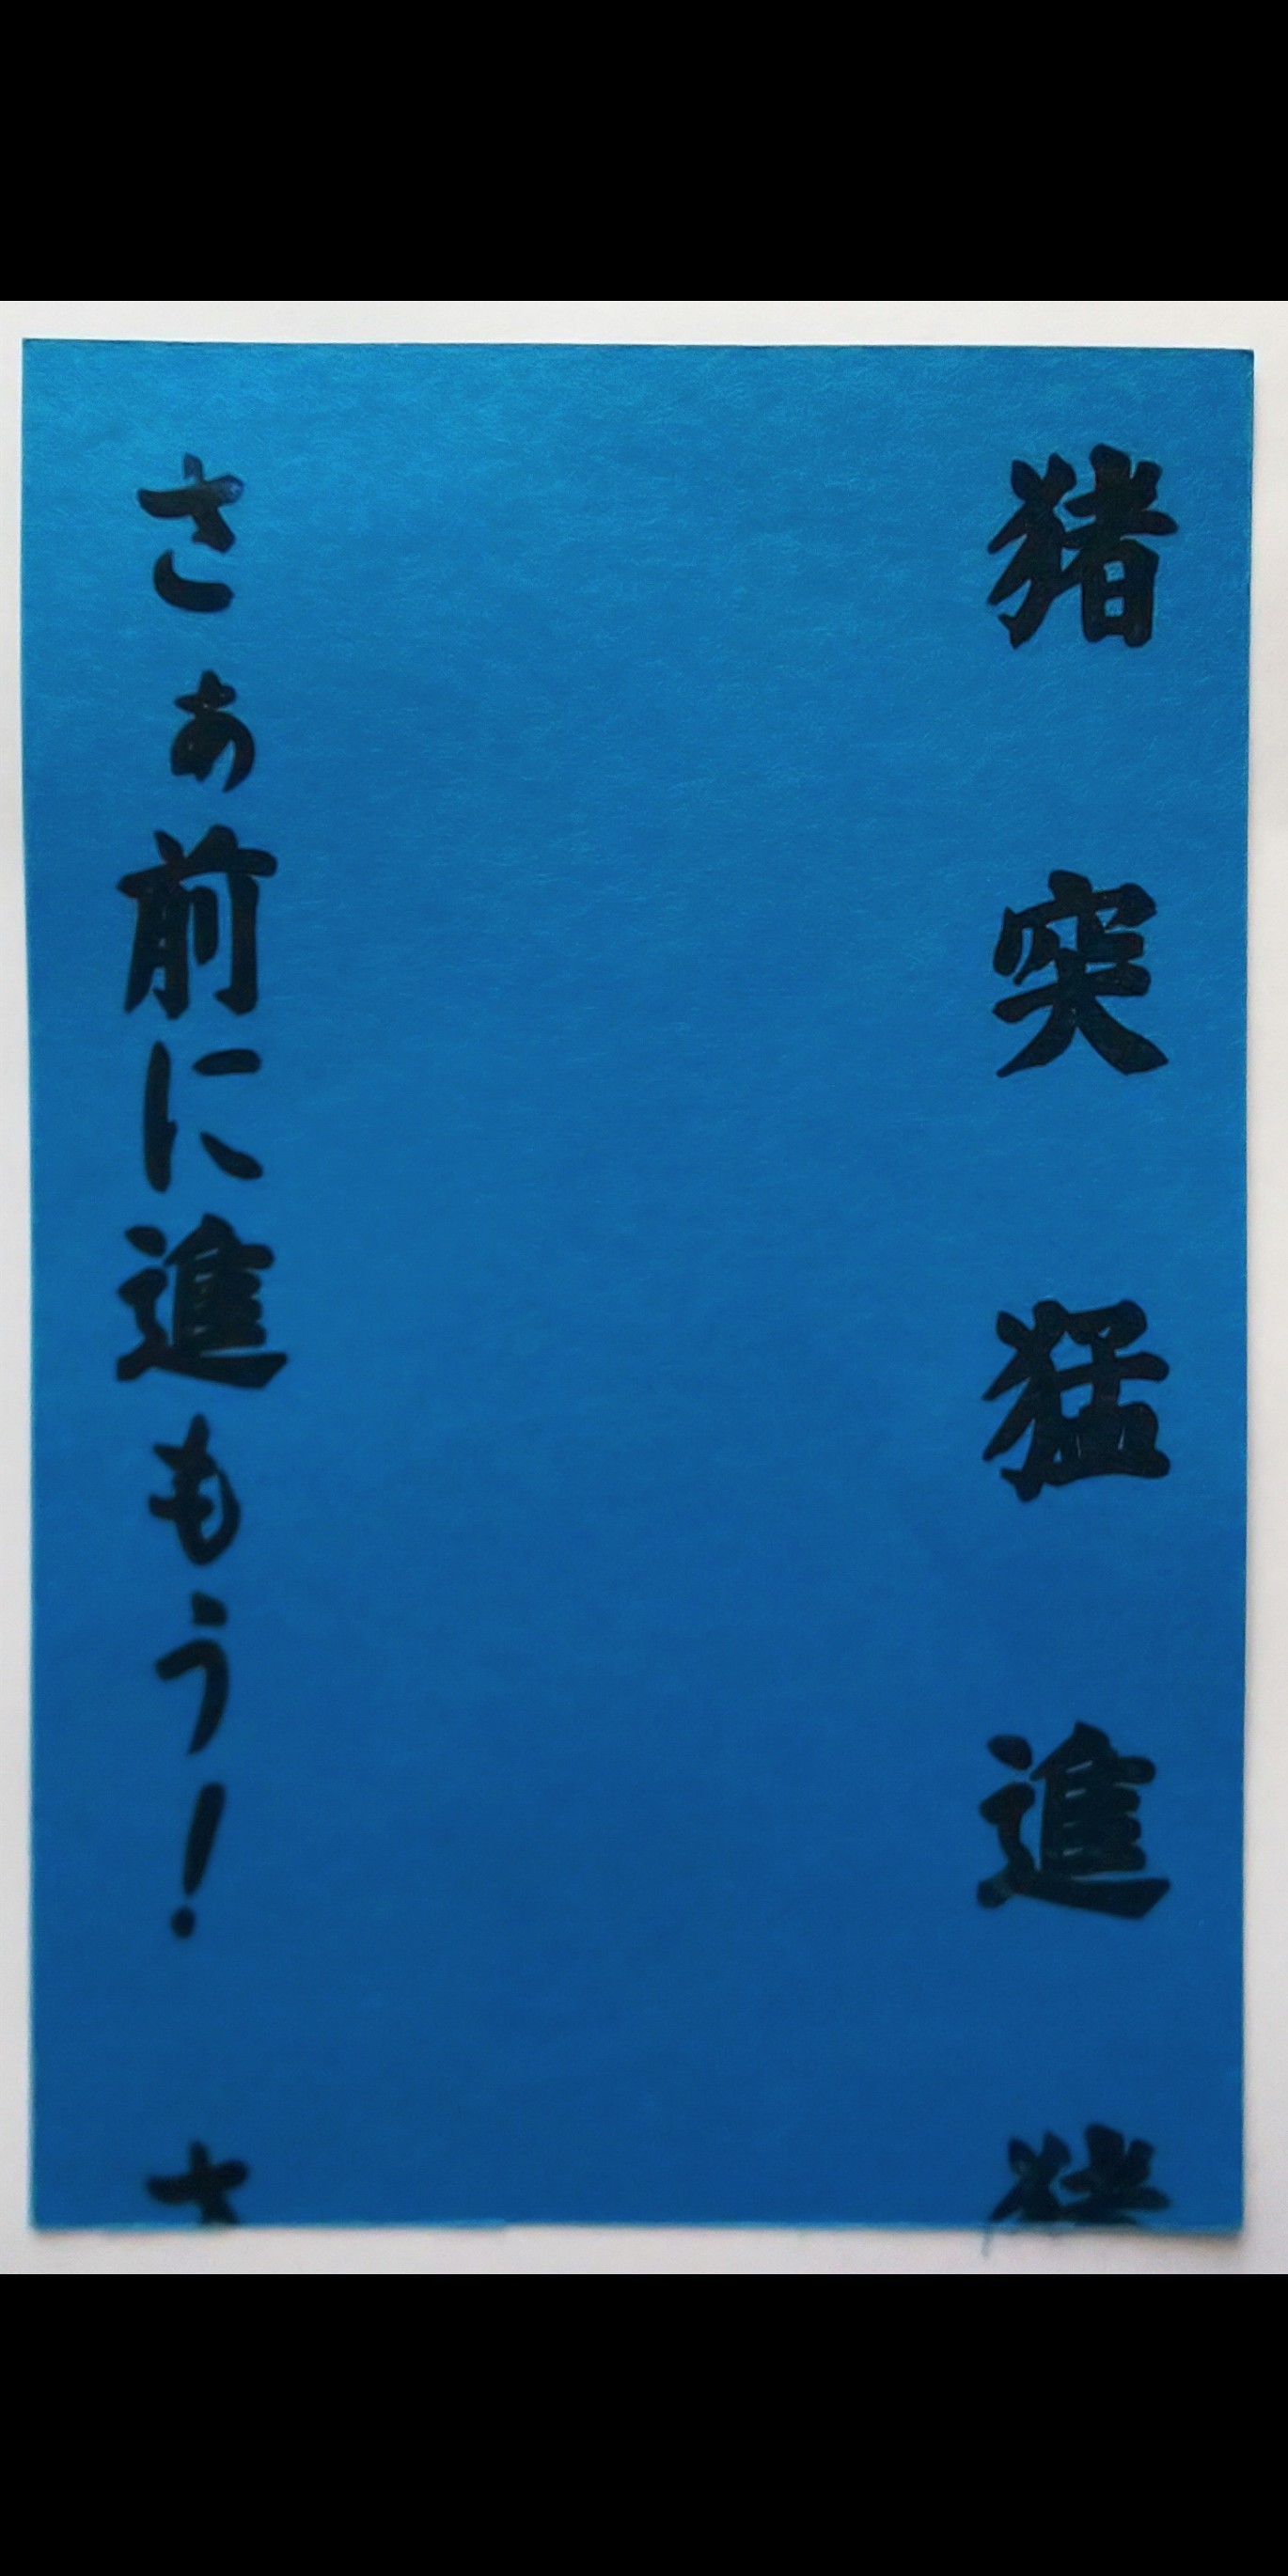 猪突猛進
さぁ前に進もう!